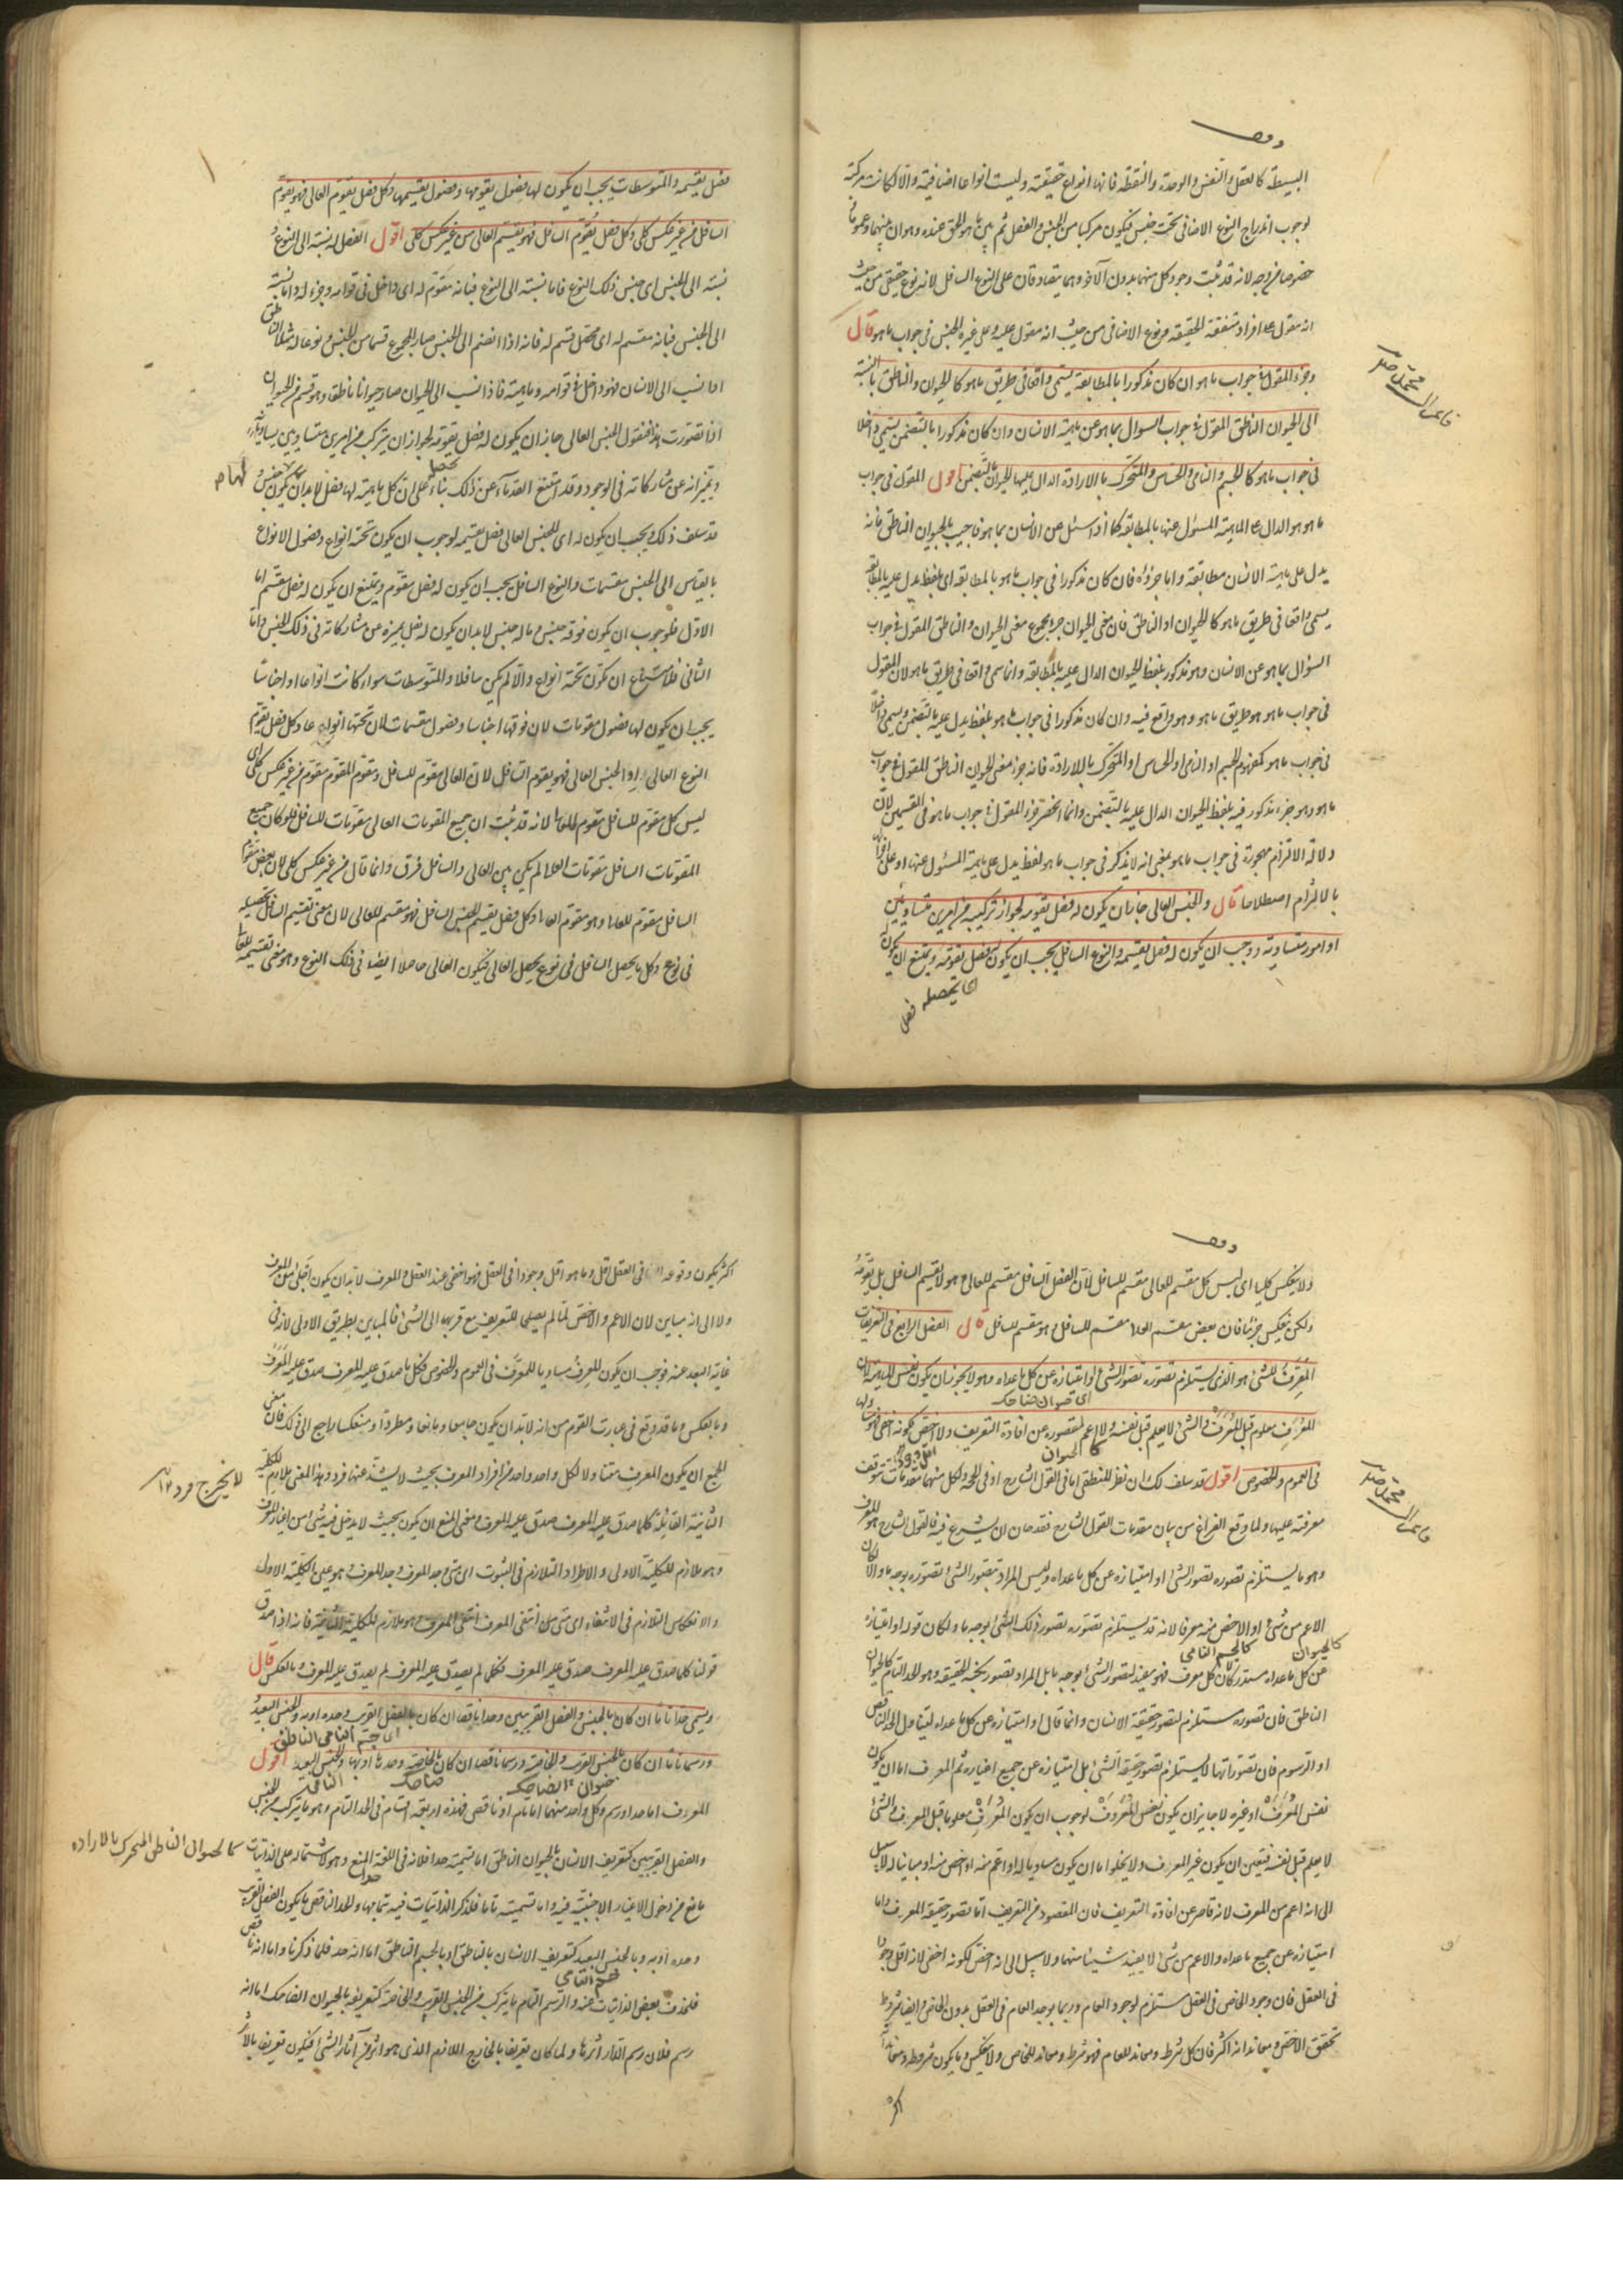 وقف
البسيطة كالعقل والنفس والوحدة والنقطة فانها انواع حقيقية وليست انواعا اضافية والا لكانت مركبة
لوجوب اندراج النوع الاضافى تحت جنس فيكون مركبا من الجنس والفصل ثم بين ما هو الحق عنده وهو ان بينهما عموما
وخصوصا من وجه لانه قد ثبت وجود كل منهما بدون الآخر وهما يتصادقان على النوع السافل لانه نوع حقيقى من حيث
انه مقول على افراد متفقة الحقيقة ونوع اضافى من حيث انه مقول عليه وعلى غيره الجنس فى جواب ما هو قال
وجزء المقول فى جواب ما هو ان كان مذكورا بالمطابقة يسمى واقعا فى طريق ما هو كالحيوان والناطق بالنسبة
الى الحيوان الناطق المقول فى جواب السؤال بما هو عن ماهية الانسان وان كان مذكورا بالتضمن يسمى داخلا
فى جواب ما هو كالجسم والنامى والحساس والمتحرك بالارادة الدال عليها الحيوان بالتضمن اقول المقول فى جواب
ما هو هو الدال على الماهية المسئول عنها بالمطابقة كما اذا سئل عن الانسان بما هو فاجيب بالحيوان الناطق فانه
يدل على ماهية الانسان مطابقة واما جزؤه فان كان مذكورا فى جواب ما هو بالمطابقة اى بلفظ يدل عليه بالمطابقة
يسمى واقعا فى طريق ما هو كالحيوان او الناطق فان معنى الحيوان جزء لمجموع معنى الحيوان والناطق المقول فى جواب
السؤال بما هو عن الانسان وهو مذكور بلفظ الحيوان الدال عليه بالمطابقة وانما سمى واقعا فى طريق ما هو لان المقول
فى جواب ما هو هو طريق ما هو وهو واقع فيه وان كان مذكورا فى جواب ما هو بلفظ يدل عليه بالتضمن ويسمى داخلا
فى جواب ما هو كمفهوم الجسم او النامى او الحساس او المتحرك بالارادة فانه جزء معنى الحيوان الناطق المقول فى جواب
ما هو وهو جزء مذكور فيه بلفظ الحيوان الدال عليه بالتضمن وانما انحصر جزء المقول فى جواب ما هو فى القسمين لان
دلالة الالتزام مهجورة فى جواب ما هو بمعنى انه لا يذكر فى جواب ما هو لفظ يدل على ماهية المسئول عنها او على اجزائها
بالالتزام اصطلاحا قال والجنس العالى جاز ان يكون له فصل يقومه لجواز تركيبه من امرين متساويين
او امور متساوية ووجب ان يكون له فصل يقسمه والنوع السافل يجب ان يكون له فصل يقومه ويمتنع ان يكون له
اى يحصله
فصل
فصل يقسمه والمتوسطات يجب ان يكون لها فصول يقومها وفصول يقسمها وكل فصل يقوم العالى فهو يقوم
السافل من غير عكس كلى وكل فصل يقسم السافل فهو يقسم العالى من غير عكس كلى اقول الفصل له نسبة الى النوع و
نسبة الى الجنس اى جنس ذلك النوع فاما نسبته الى النوع فبانه مقوم له اى داخل فى قوامه وجزء له واما نسبته
الى الجنس فبانه مقسم له اى محصل قسم له فانه اذا انضم الى الجنس صار المجموع قسما من الجنس ونوعا له مثلا الناطق
اذا نسب الى الانسان فهو داخل فى قوامه وماهيته فاذا نسب الى الحيوان صار حيوانا ناطقا وهو قسم من الحيوان
اذا تصورت هذا فنقول الجنس العالى جاز ان يكون له فصل يقومه لجواز ان يتركب من امرين متساويين يساويانه
ويميزانه عن مشاركاته فى الوجود وقد امتنع القدماء عن ذلك بناء على ان كل ماهية لها فصل لا بد ان يكون لها جنس
قد سلف ذلك ويجب ان يكون له اى للجنس العالى فصل يقسمه لوجوب ان يكون تحته انواع وفصول الانواع
بالقياس الى الجنس مقسمات والنوع السافل يجب ان يكون له فصل مقوم ويمتنع ان يكون له فصل مقسم اما
الاول فلوجوب ان يكون فوقه جنس وما له جنس لا بد ان يكون له فصل يميزه عن مشاركاته فى ذلك الجنس واما
الثانى فلامتناع ان يكون تحته انواع والا لم يكن سافلا والمتوسطات سواء كانت انواعا او اجناسا
يجب ان يكون لها فصول مقومات لان فوقها اجناسا وفصول مقسمات لان تحتها انواعا وكل فصل يقوم
النوع العالى او الجنس العالى فهو يقوم السافل لان العالى مقوم للسافل ومقوم المقوم مقوم من غير عكس كلى اى
ليس كل مقوم للسافل مقوم للعالى لانه قد ثبت ان جميع المقومات العالى مقومات للسافل فلو كان جميع
المقومات السافل مقومات العالى لم يكن بين العالى والسافل فرق وانما قال من غير عكس كلى لان بعض مقوم
السافل مقوم للعالى وهو مقوم العالى وكل فصل يقسم الجنس السافل فهو مقسم للعالى لان معنى تقسيم السافل تحصيله
فى نوع وكل ما يحصل السافل فى نوع يحصل العالى فيكون العالى حاصلا ايضا فى ذلك النوع وهو معنى تقسيمه للعالى
وقف
ولا ينعكس كليا اى ليس كل مقسم للعالى مقسم للسافل لان الفصل السافل مقسم للعالى وهو لا يقسم السافل بل يقومه
ولكن ينعكس جزئيا فان بعض مقسم العالى مقسم للسافل وهو مقسم السافل قال الفصل الرابع فى التعريفات
المعرف للشئ هو الذى يستلزم تصوره تصور الشئ او امتيازه عن كل ما عداه وهو لا يجوز ان يكون نفس الماهية لان
المعرف معلوم قبل المعرف والشئ لا يعلم قبل نفسه ولا اعم لقصوره عن افادة التعريف ولا اخص لكونه اخفى فهو مساو لها
كالحيوان
فى العموم والخصوص اقول قد سلف لك ان نظر المنطقى اما فى القول الشارح او فى الحجة ولكل منهما مقدمات يتوقف
معرفته عليها ولما وقع الفراغ من بيان مقدمات القول الشارح فقد حان ان يشرع فيه فالقول الشارح هو المعرف
وهو ما يستلزم تصوره تصور الشئ او امتيازه عن كل ما عداه وليس المراد بتصور الشئ تصوره بوجه ما والا لكان
الاعم من شئ او الاخص منه معرفا لانه قد يستلزم تصوره تصور ذلك الشئ بوجه ما ولكان قوله او امتيازه
كالحيوان كالجسم النامى
عن كل ما عداه مستدركا لان كل معرف فهو مفيد لتصور الشئ بوجه ما بل المراد تصوره بكنه الحقيقة وهو الحد التام كالحيوان
الناطق فان تصوره مستلزم لتصور حقيقة الانسان وانما قال او امتيازه عن كل ما عداه ليتناول الحد الناقص
او الرسوم فان تصوراتها لا يستلزم تصور حقيقة الشئ بل امتيازه عن جميع اغياره ثم المعرف اما ان يكون
نفس المعرف او غيره لا جائز ان يكون نفس المعرف لوجوب ان يكون المعرف معلوما قبل المعرف والشئ
لا يعلم قبل نفسه فتعين ان يكون غير المعرف ولا يخلوا اما ان يكون مساويا له او اعم منه او اخص منه او مباينا له لا سبيل
الى انه اعم من المعرف لانه قاصر عن افادة التعريف فان المقصود من التعريف اما تصور حقيقة المعرف واما
امتيازه عن جميع ما عداه والاعم من شئ لا يفيد شيئا منهما ولا سبيل الى انه اخص لكونه اخفى لانه اقل وجودا
فى العقل فان وجود الخاص فى العقل مستلزم لوجود العام وربما يوجد العام فى العقل بدون الخاص وايضا شروط
تحقق الاخص ومعانداته اكثر فان كل شرط ومعاند للعام فهو شرط ومعاند للخاص ولا ينعكس وما يكون شروطه ومعانداته
اكثر
اكثر يكون وقوعه فى العقل اقل وما هو اقل وجودا فى العقل فهو اخفى عند العقل والمعرف لا بد ان يكون اجلى من المعرف
ولا الى انه مباين لان الاعم والاخص لما لم يصلحا للتعريف مع قربهما الى الشئ فالمباين بطريق الاولى لانه فى
غاية البعد عنه فوجب ان يكون المعرف مساويا للمعرف فى العموم والخصوص فكل ما صدق عليه المعرف صدق عليه المعرف
وبالعكس وما قد وقع فى عبارت القوم من انه لا بد ان يكون جامعا ومانعا ومطردا ومنعكسا راجع الى ذلك فان معنى
الجمع ان يكون المعرف متناولا لكل واحد واحد من افراد المعرف بحيث لا يشذ عنها فرد وهذا المعنى ملازم للكلية
لا يخرج فرد
الثانية القائلة كلما صدق عليه المعرف صدق عليه المعرف ومعنى المنع ان يكون بحيث لا يدخل فيه شئ من اغيار المعرف
وهو ملازم للكلية الاولى والاطراد التلازم فى الثبوت اى متى وجد المعرف وجد المعرف وهو عين الكلية الاولى
والانعكاس التلازم فى الانتفاء اى متى انتفى المعرف انتفى المعرف وهو ملازم للكلية الثانية فانه اذا صدق
قولنا كلما صدق عليه المعرف صدق عليه المعرف فكل ما لم يصدق عليه المعرف لم يصدق عليه المعرف وبالعكس قال
ويسمى حدا تاما ان كان بالجنس والفصل القريبين وحدا ناقصا ان كان بالفصل القريب وحده او به وبالجنس البعيد
ورسما تاما ان كان بالجنس القريب والخاصة ورسما ناقصا ان كان بالخاصة وحدها او بها وبالجنس البعيد اقول
المعرف اما حد او رسم وكل واحد منهما اما تام او ناقص فهذه اربعة اقسام فالحد التام وهو ما يتركب من الجنس
والفصل القريبين كتعريف الانسان بالحيوان الناطق اما تسميته حدا فلانه فى اللغة المنع وهو لاشتماله على الذاتيات
كالحيوان الناطق المتحرك بالاراده
مانع من دخول الاغيار الاجنبية فيه واما تسميته تاما فلذكر الذاتيات فيه بتمامها والحد الناقص ما يكون بالفصل القريب
وحده او به وبالجنس البعيد كتعريف الانسان بالناطق او بالجسم الناطق اما انه حد فلما ذكرنا واما انه ناقص
فلحذف بعض الذاتيات عنه والرسم التام ما يتركب من الجنس القريب والخاصة كتعريفه بالحيوان الضاحك اما انه
رسم فلان رسم الدار اثرها ولما كان تعريفا بالخارج اللازم الذى هو اثر من آثار الشئ فيكون تعريفا بالاثر